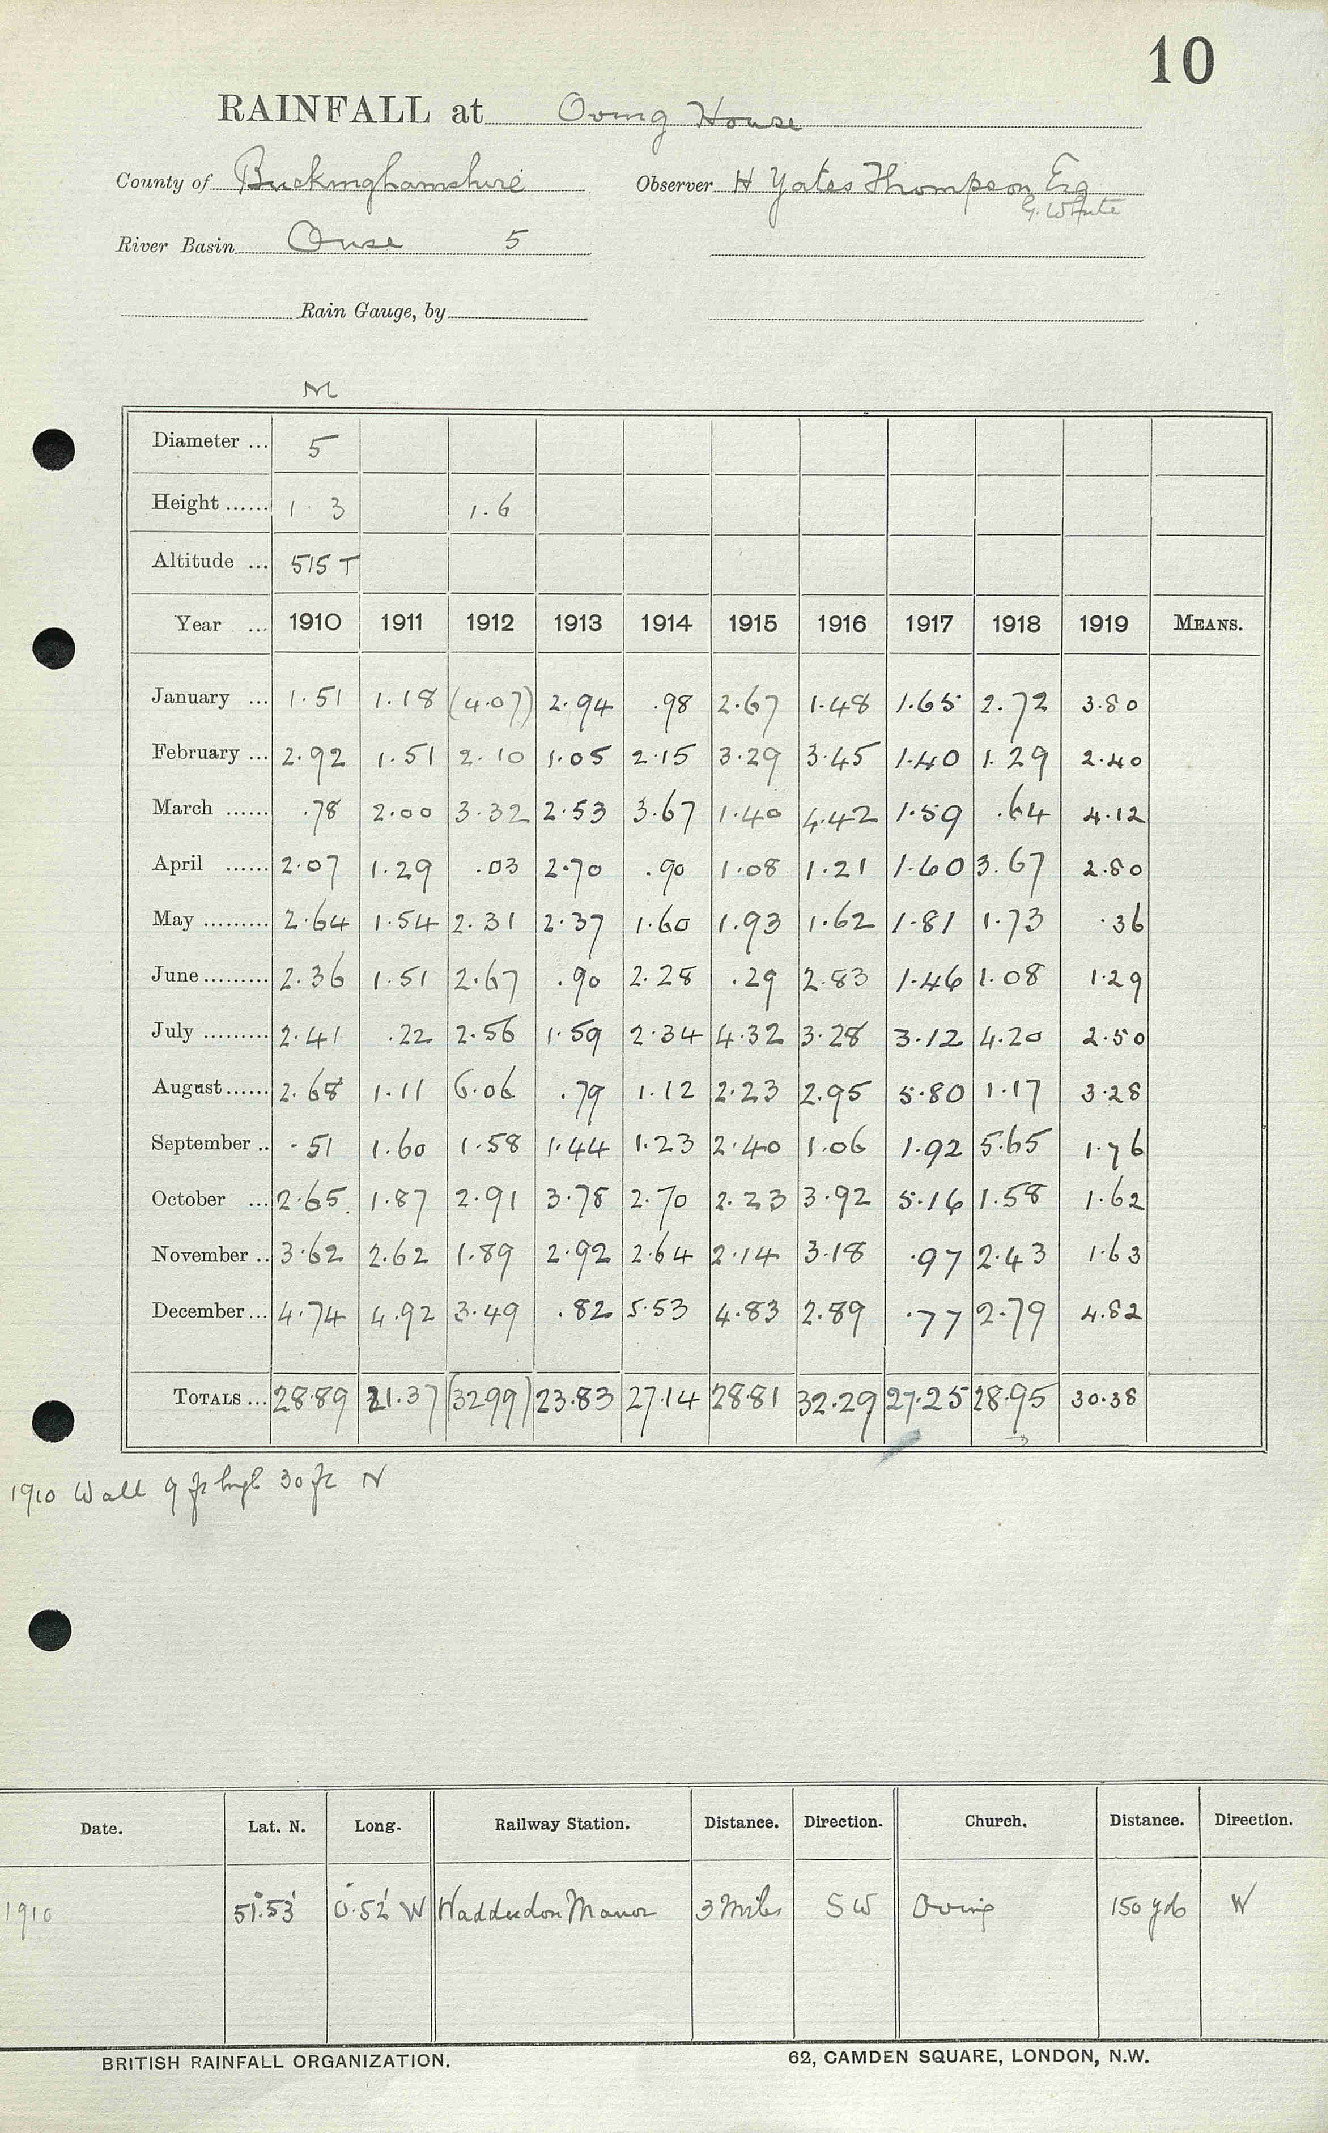 10
RAINFALL at Oving House
County of Buckinghamshire Observer H Yates Thompson Esq
G. White
River Basin Ouse 5
Rain Gauge, by
M
Diameter ... 5
Height ...... 1 · 3 1.6
Altitude ... 515 T
Year ... 1910 1911 1912 1913 1914 1915 1916 1917 1918 1919 MEANS.
January ... 1.51 1.18 (4.07) 2.94 .98 2.67 1.48 1.65 2.72 3.80
February ... 2.92 1.51 2.10 1.05 2.15 3.29 3.45 1.40 1.29 2.40
March ...... .78 2.00 3.32 2.53 3.67 1.40 4.42 1.59 .64 4.12
April ...... 2.07 1.29 .03 2.70 .90 1.08 1.21 1.60 3.67 2.80
May ......... 2.64 1.54 2.31 2.37 1.60 1.93 1.62 1.81 1.73 .36
June ......... 2.36 1.51 2.67 .90 2.28 .29 2.83 1.46 1.08 1.29
July ......... 2.41 .22 2.56 1.59 2.34 4.32 3.28 3.12 4.20 2.50
August ...... 2.68 1.11 6.06 .79 1.12 2.23 2.95 5.80 1.17 3.28
September .. .51 1.60 1.58 1.44 1.23 2.40 1.06 1.92 5.65 1.76
October ... 2.65 1.87 2.91 3.78 2.70 2.23 3.92 5.16 1.58 1.62
November .. 3.62 2.62 1.89 2.92 2.64 2.14 3.18 .97 2.43 1.63
December ... 4.74 4.92 3.49 .82 5.53 4.83 2.89 .77 2.79 4.82
TOTALS ... 28.89 21.37 (32.99) 23.83 27.14 28.81 32.29 27.25 28.95 30.38
1910 Wall 9 ft high 30 ft N
Date. Lat. N. Long. Railway Station. Distance. Direction. Church. Distance. Direction.
1910 51°.53' 0°.52' W Waddesdon Manor 3 Miles SW Oving 150 yds W
BRITISH RAINFALL ORGANIZATION. 62, CAMDEN SQUARE, LONDON, N.W.